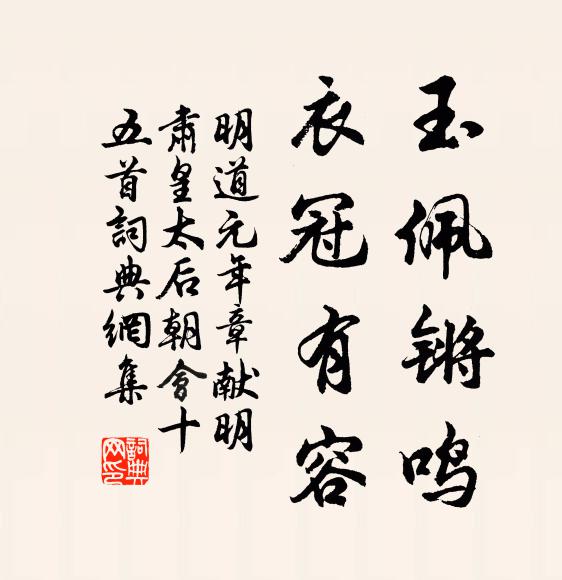 玉佩锵鸣
衣冠有容
明道元年章献明
肃皇太后朝会十
五首詞典網集
詞典
网印